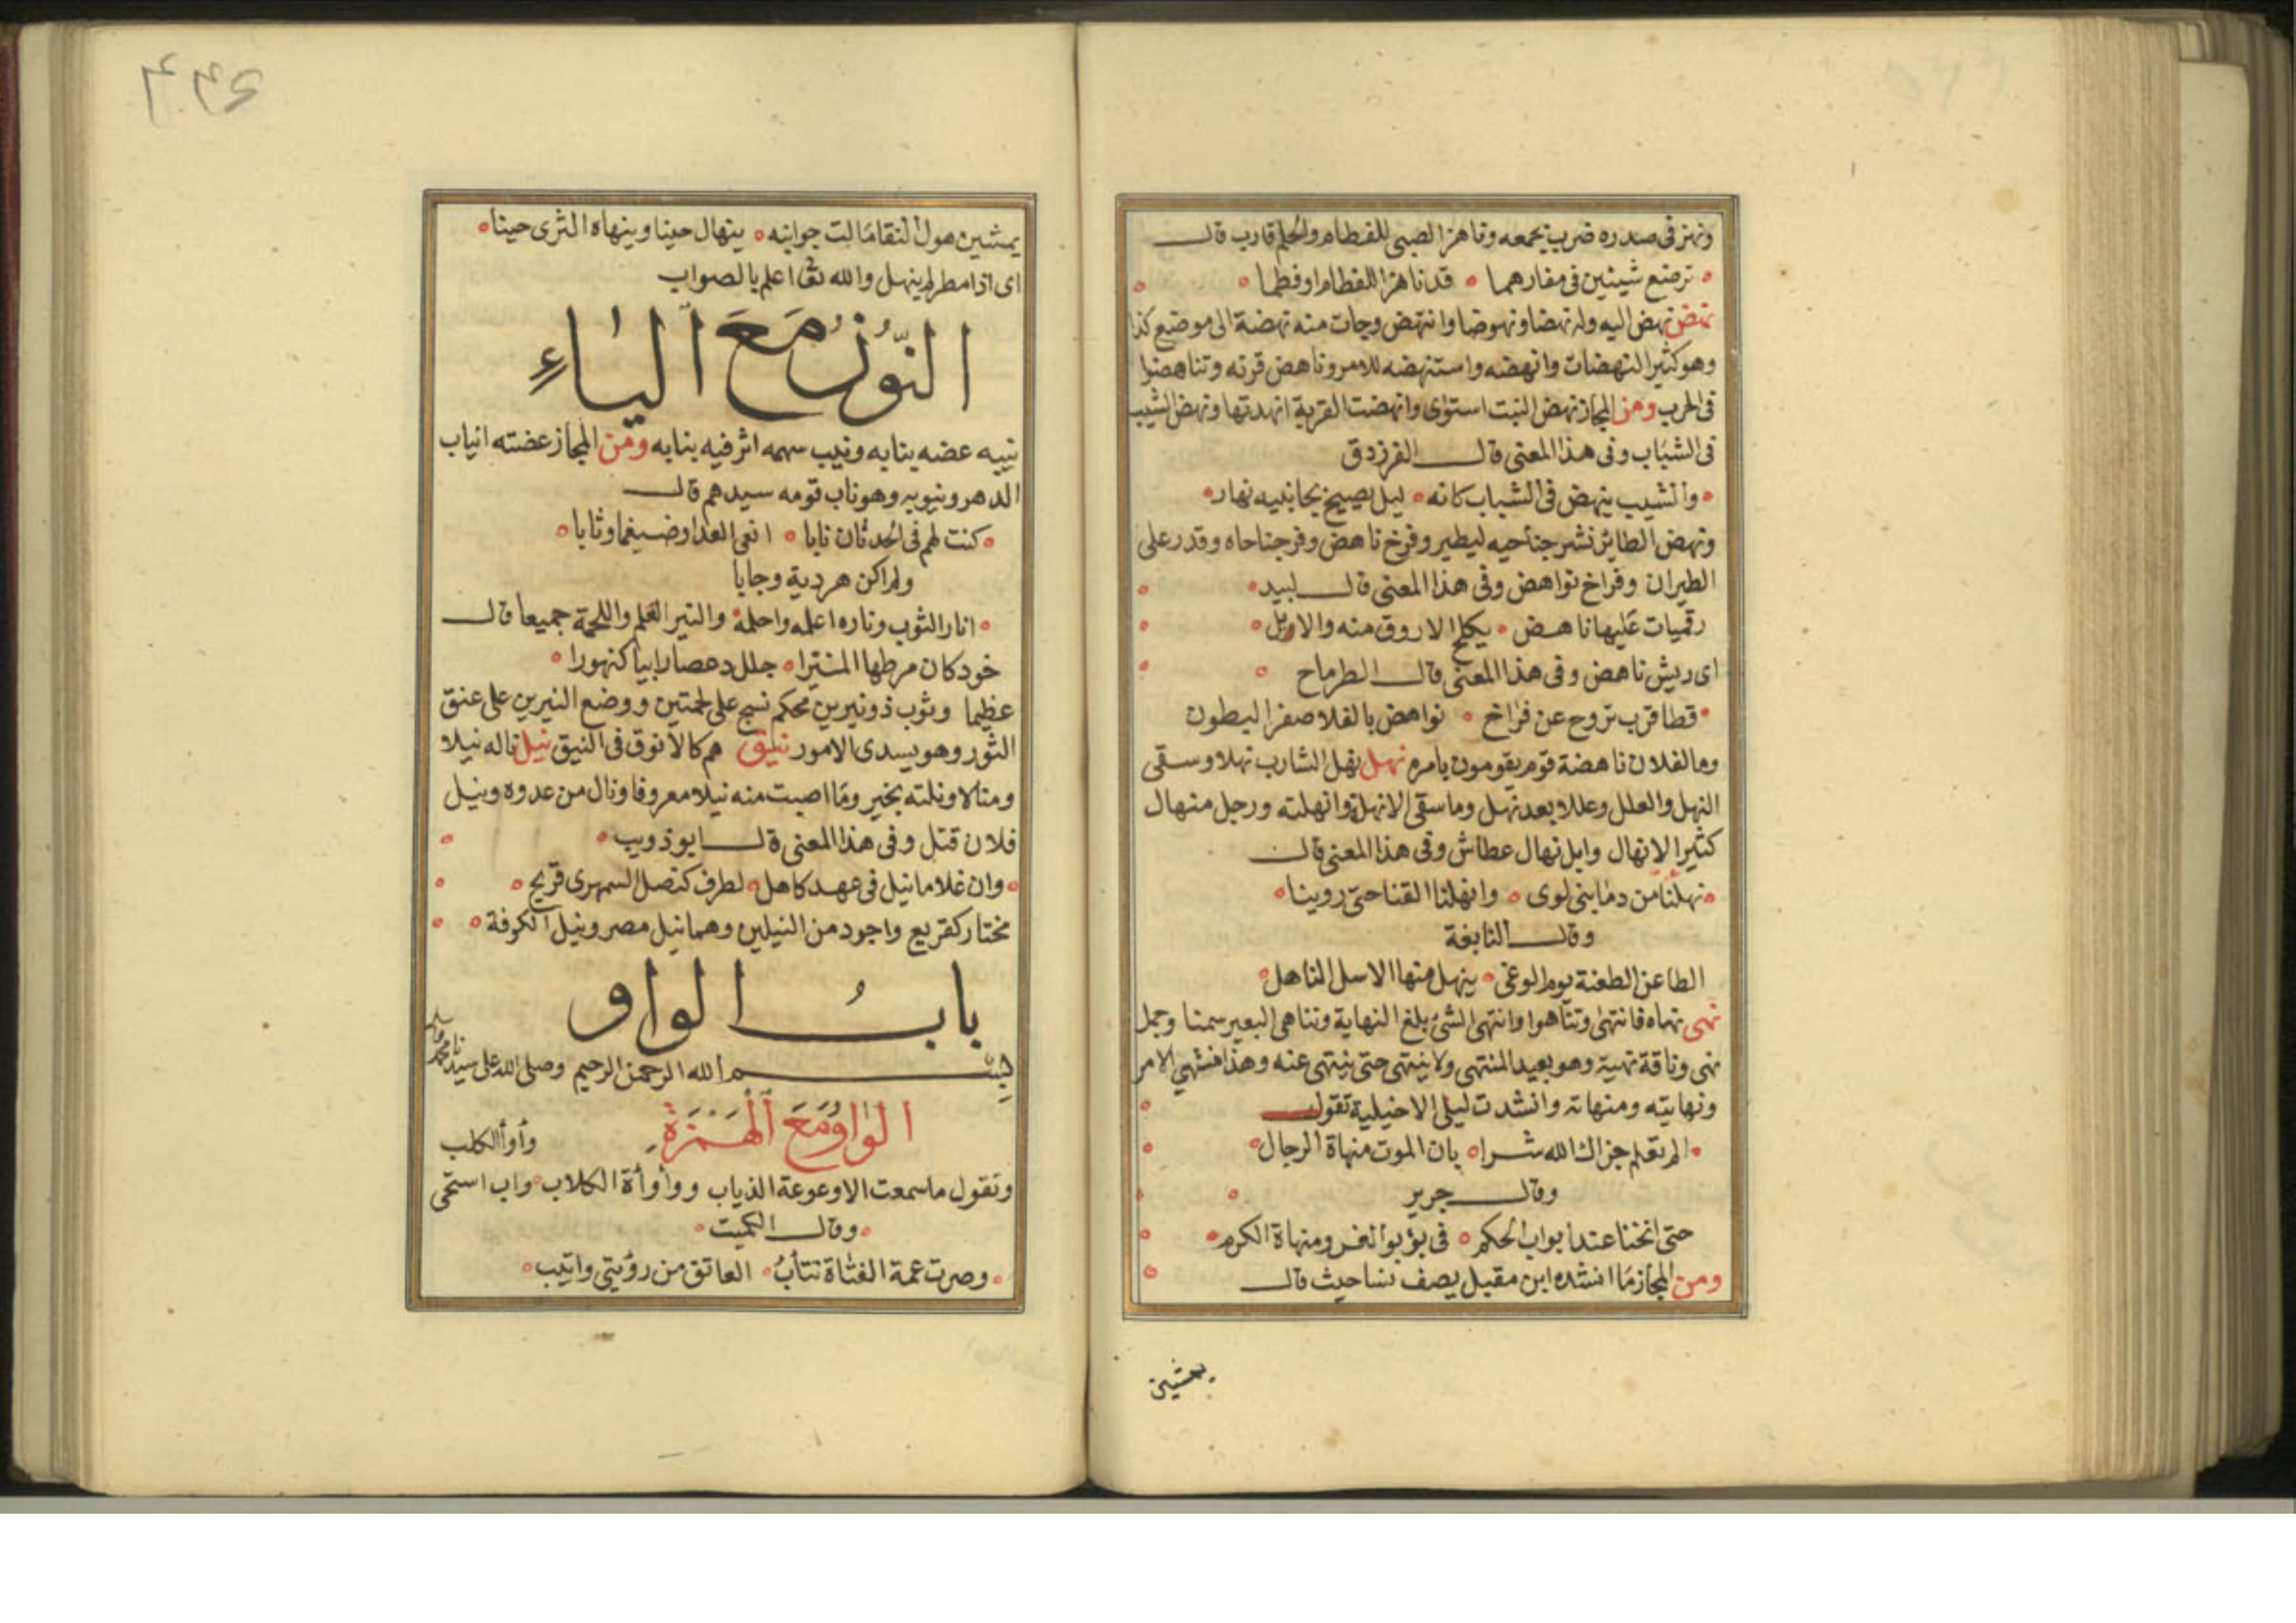 ونهز فى صدره ضرب بجمعه وناهز الصبى للفطام والحلم قارب قال
ترضع شبنين فى مغارهما قد ناهزا للفطام او فطما
نهض نهض اليه وله نهضا ونهوضا وانتهض وجات منه نهضة الى موضع كذا
وهو كثير النهضات وانهضه واستنهضه للامر وناهض قرنه وتناهضوا
فى الحرب ومن المجاز نهض النبت استوى وانهضت القربة انهدتها ونهض الشيب
فى الشباب وفى هذا المعنى قال الفرزدق
والشيب ينهض فى الشباب كانه ليل يصيح بجانبيه نهار
ونهض الطائر نشر جناحيه ليطير وفرخ ناهض وفر جناحاه وقدر على
الطيران وفراخ نواهض وفى هذا المعنى قال لبيد
رقميات عليها ناهض يكلح الاروق منه والايل
اى ريش ناهض وفى هذا المعنى قال الطرماح
قطا قرب تروح عن فراخ نواهض بالفلا صفر البطون
وما لفلان ناهضة قوم يقومون بامره نهل نهل الشارب نهلا وسقى
النهل والعلل وعللا بعد نهل وما سقى الا نهلة وانهلته ورجل منهال
كثير الانهال وابل نهال عطاش وفى هذا المعنى قال
نهلنا من دما بنى لوى وانهلنا القنا حتى روينا
وقال النابغة
الطاعن الطعنة يوم الوغى ينهل منها الاسل الناهل
نهى نهاه فانتهى وتناهوا وانتهى الشئ بلغ النهاية وتناهى البعير سمنا وجمل
نهى وناقة نهية وهو بعيد المنتهى ولا ينتهى حتى ينتهى عنه وهذا منتهى الامر
ونهايته ومنهاته وانشدت ليلى الاخيلية تقول
الم تعلم جزاك الله شرا بان الموت منهاة الرجال
وقال جرير
حتى انخنا عند ابواب الحكم فى بؤبؤ العز ومنهاة الكرم
ومن المجاز ما انشده ابن مقبل يصف نسا حيث قال
يمشين
٤٤٤
يمشين هول النقا مالت جوانبه ينهال حينا وينهاه الثرى حينا
اى اذا مطر لم ينهل والله تعالى اعلم بالصواب
النون مع الياء
نيبه عضه بنابه ونيب سهمه اثر فيه بنابه ومن المجاز عضته انياب
الدهر ونيوبه وهو ناب قومه سيدهم قال
كنت لهم فى الحدثان نابا انفى العدا وضيغما وثابا
ولم اكن هردبة وجابا
انار الثوب وناره اعلمه واحلمه والنير العلم واللحمة جميعا قال
خود كان مرطها المنيرا جلل دعصا رابيا كنهورا
عظيما وثوب ذو نيرين محكم نسج على لحمتين ووضع النيرين على عنق
الثور وهو يسدى الامور نيق هم كالانوق فى النيق نيل ناله نيلا
ومنالا ونلته بخير وما اصبت منه نيلا معروفا ونال من عدوه ونيل
فلان قتل وفى هذا المعنى قال ابو ذويب
وان غلاما نيل فى عهد كاهل لطرف كنصل السمهرى قريح
مختار كقريع واجود من النيلين وهما نيل مصر ونيل الكوفة
باب الواو
بسم الله الرحمن الرحيم وصلى الله على سيدنا محمد وسلم
الواو مع الهمزة وأوأ الكلب
وتقول ما سمعت الا وعوعة الذياب ووأوأة الكلاب واب استحى
وقال الكميت
وصرت عمة الفتاة تتأب العاتق من رؤيتى واتيب